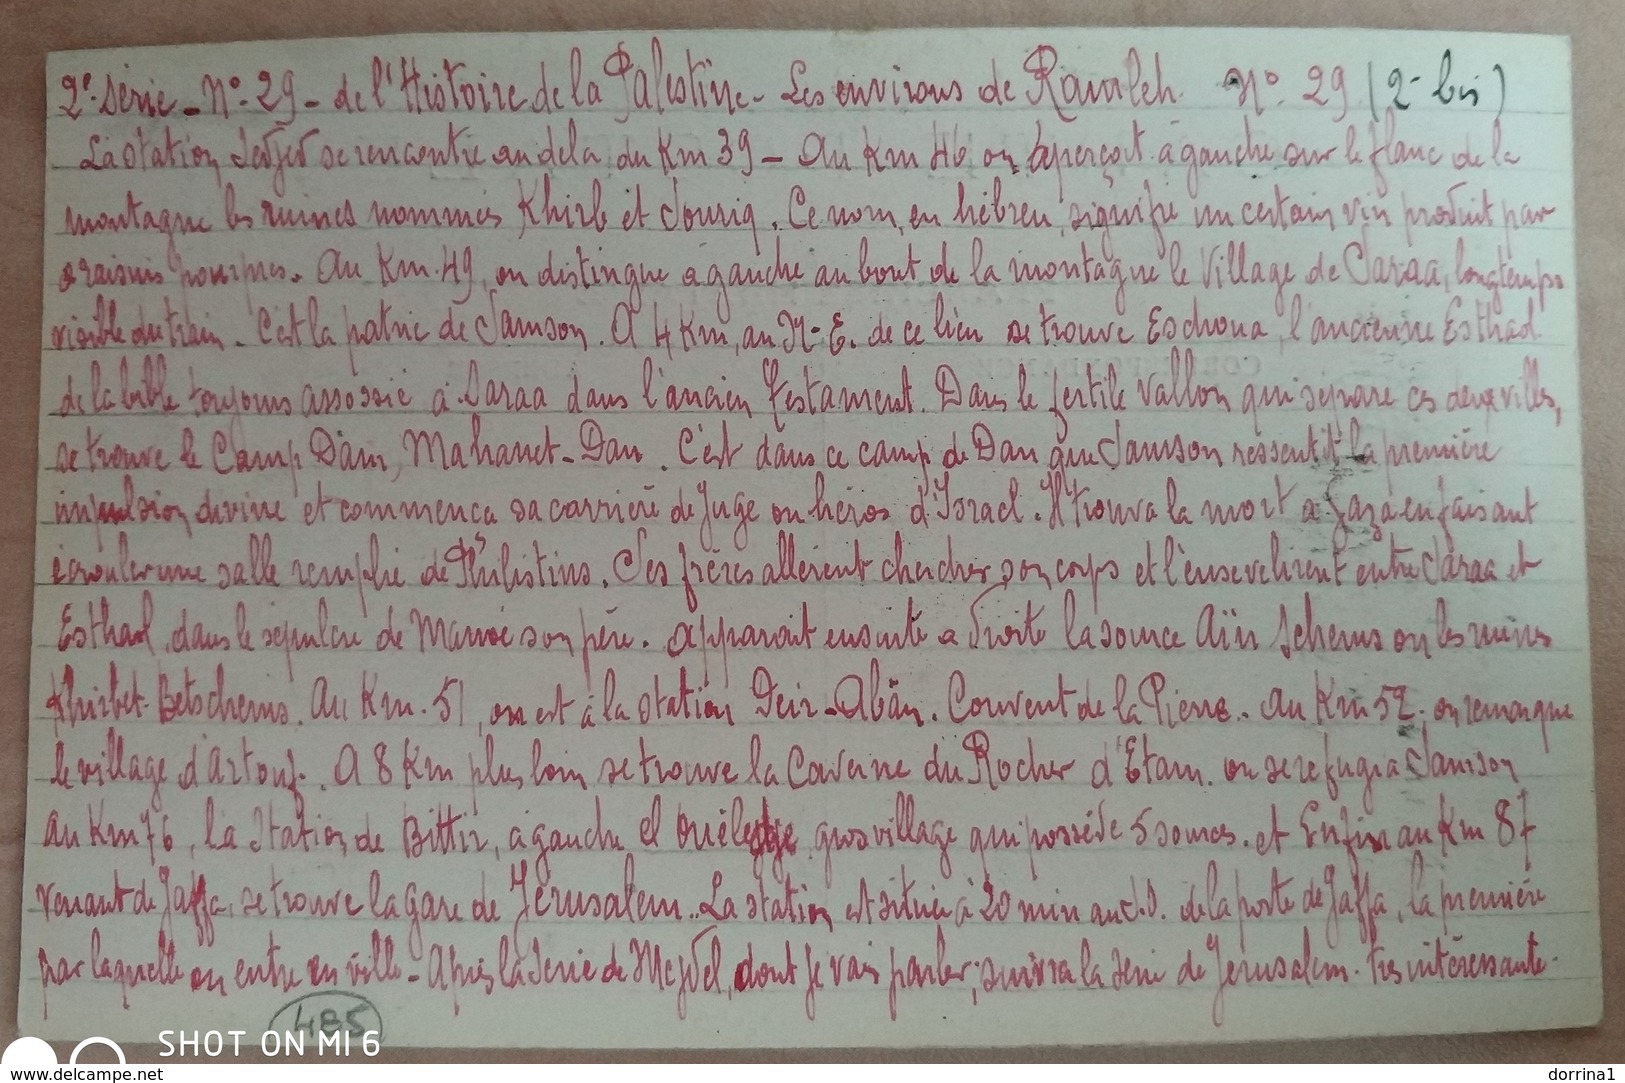 2e. Série - No. 29 - de l'Histoire de la Palestine - Les environs de Ramleh. No. 29 (2- bis)
La station Sedjed se rencontre au dela du Km 39 - Au Km 46 on aperçoit à gauche sur le flanc de la
montagne les ruines nommés Khirb et Souriq. Ce nom, en hébreu, signifie un certain vin produit par
raisins pourpres. Au Km. 49, on distingue à gauche au bout de la montagne le Village de Saraa, longtemps
visible du train. C'est la patrie de Samson. A 4 Km, au N-E. de ce lieu se trouve Eschoua, l'ancienne Esthaol
de la bible toujours assossié à Saraa dans l'ancien testament. Dans le fertile vallon qui sépare ces deux villes,
se trouve le Camp Dan, Mahanet-Dan. C'est dans ce camp de Dan que Samson ressentit la première
impulsion divine et commenca sa carrière de Juge ou héros d'Israel. Il trouva la mort a Gaza en faisant
écrouler une salle remplie de Philistins. Ses frères allerent chercher son corps et l'ensevelirent entre Saraa et
Esthaol, dans le sepulcre de Manoé son père. Apparait ensuite a droite la source Aïn Schems ou les ruines
Khirbet-Betschems. Au Km. 51, on est à la station Deir-Abân. Couvent de la Pierre. Au Km 52. on remarque
le village d'Artouf. A 8 Km plus loin se trouve la Caverne du Rocher d'Etam. ou se refugia Samson
Au Km 76, la station de Bittir, a gauche El gros village qui possède 5 sources. et Enfin au Km 87
venant de Jaffa, se trouve la gare de Jérusalem.. La station est située à 20 min au S.O. de la porte de Jaffa, la première
par laquelle on entre en ville - Après la Serie de Mejdel, dont je vais parler; suivra la serie de Jerusalem. Très intéressante.
485
SHOT ON MI 6
www.delcampe.net
dorrina1